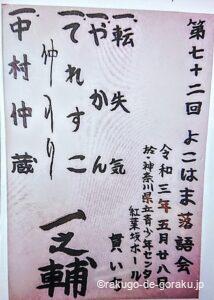 第七十二回 よこはま落語会
令和三年五月廿八日
於・神奈川県立青少年センター
紅葉坂ホール
一、転失気 貫いち
一、やかん
一、てれすこ 一之輔
仲入り
一、中村仲蔵
©rakugo-de-goraku.jp